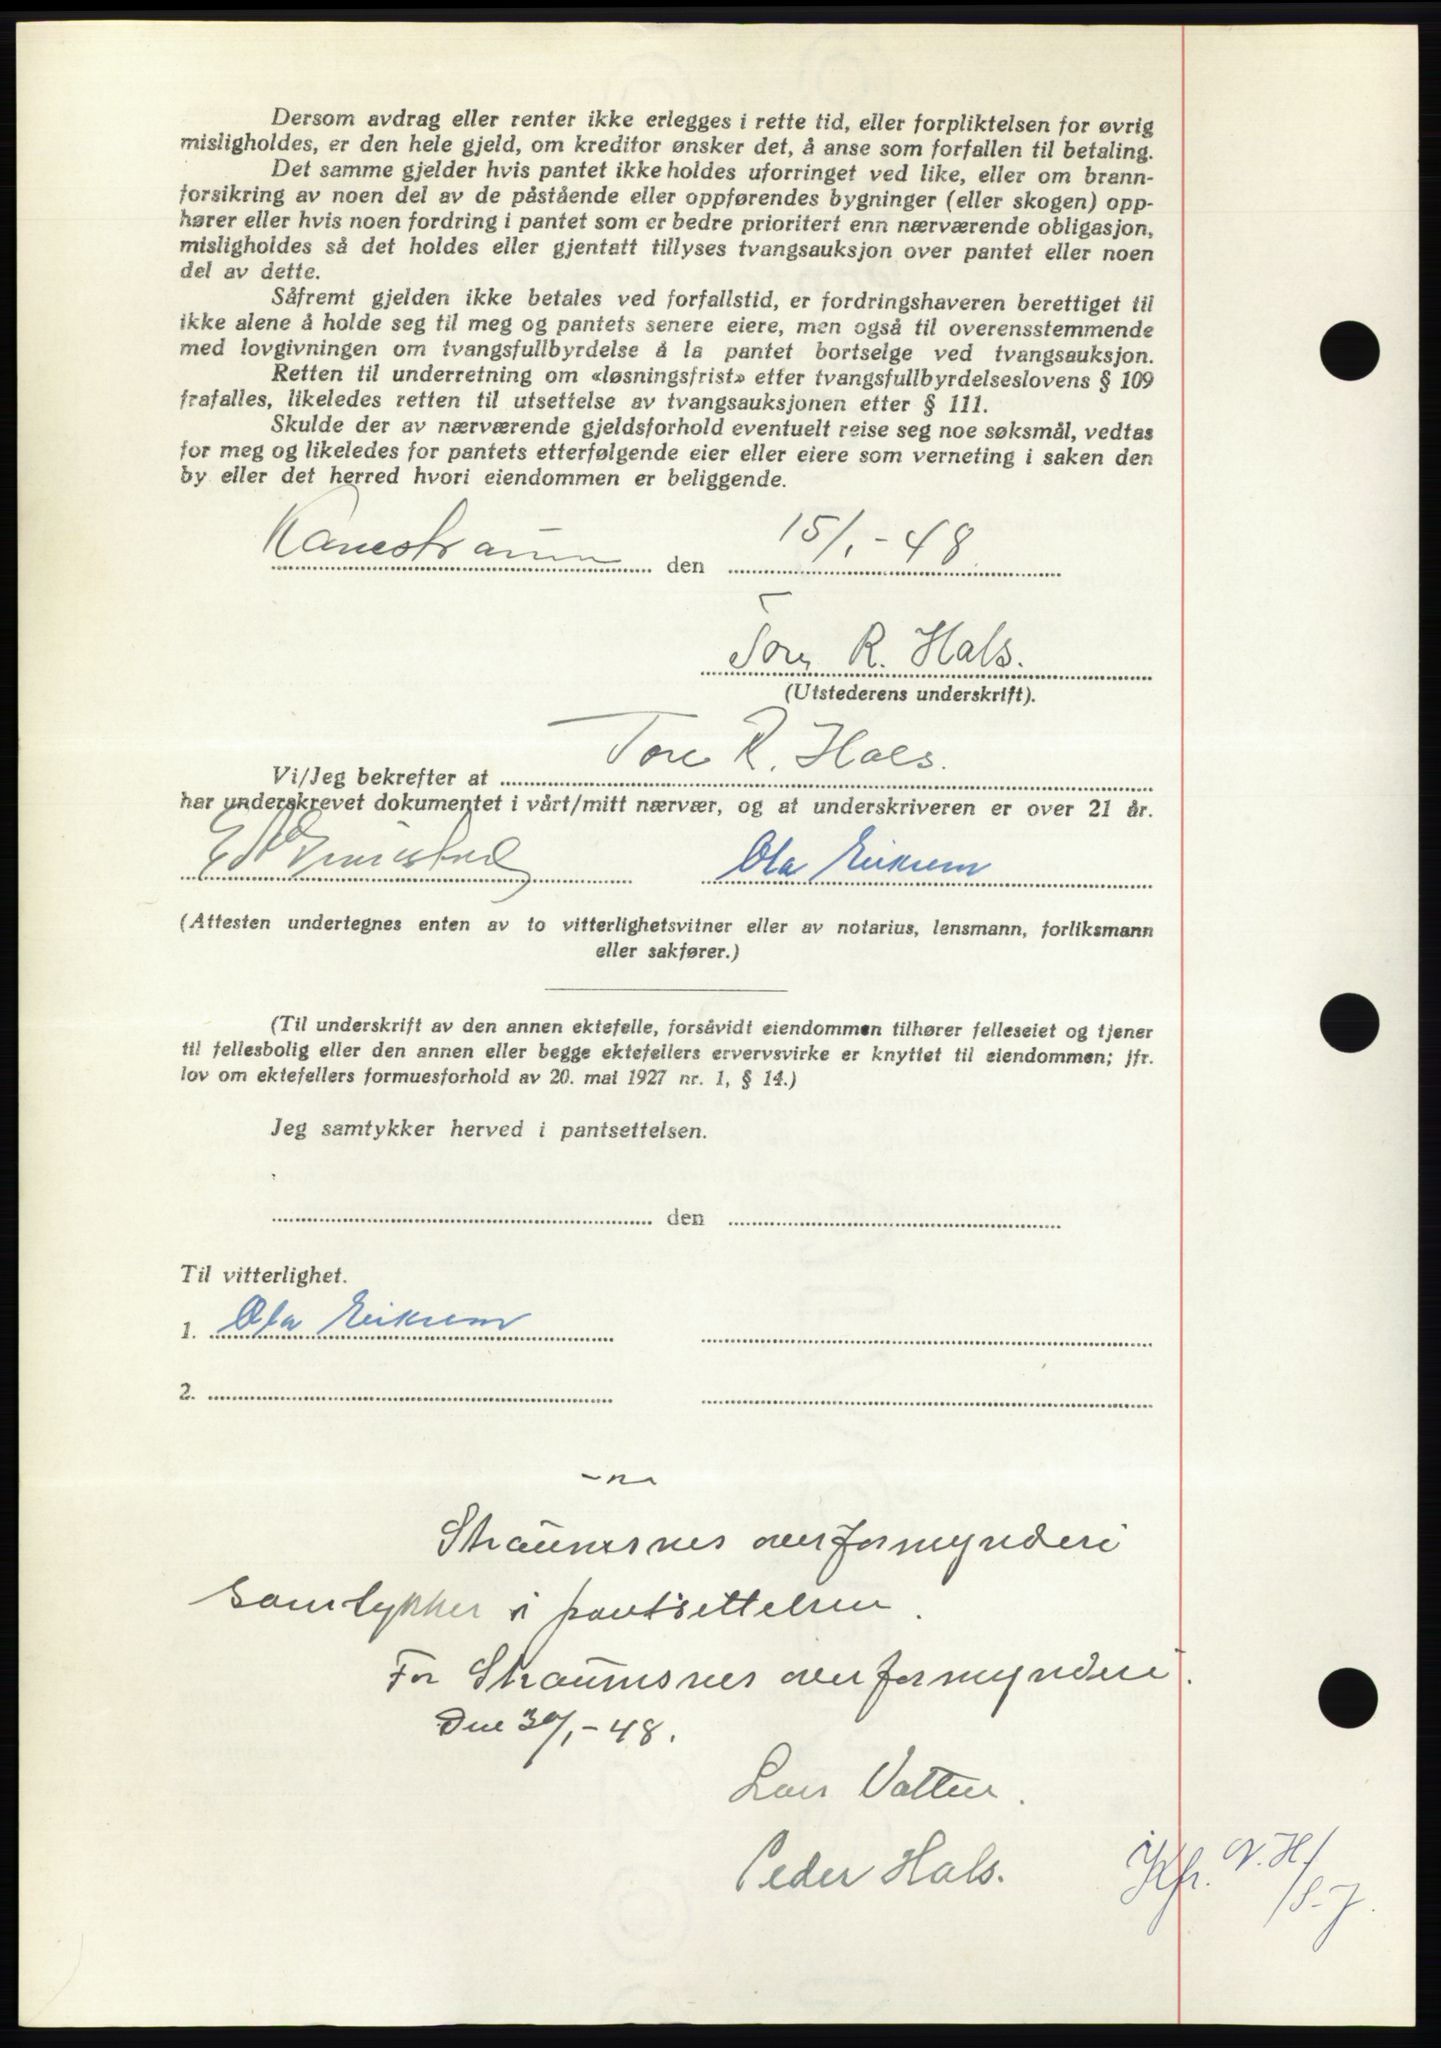 Dersom avdrag eller renter ikke erlegges i rette tid, eller forpliktelsen for øvrig
misligholdes, er den hele gjeld, om kreditor ønsker det, å anse som forfallen til betaling.
Det samme gjelder hvis pantet ikke holdes uforringet ved like, eller om brann-
forsikring av noen del av de påstående eller oppførendes bygninger (eller skogen) opp-
hører eller hvis noen fordring i pantet som er bedre prioritert enn nærværende obligasjon,
misligholdes så det holdes eller gjentatt tillyses tvangsauksjon over pantet eller noen
del av dette.
Såfremt gjelden ikke betales ved forfallstid, er fordringshaveren berettiget til
ikke alene å holde seg til meg og pantets senere eiere, men også til overensstemmende
med lovgivningen om tvangsfullbyrdelse å la pantet bortselge ved tvangsauksjon.
Retten til underretning om «løsningsfrist» etter tvangsfullbyrdelseslovens § 109
frafalles, likeledes retten til utsettelse av tvangsauksjonen etter § 111.
Skulde der av nærværende gjeldsforhold eventuelt reise seg noe søksmål, vedtas
for meg og likeledes for pantets etterfølgende eier eller eiere som verneting i saken den
by eller det herred hvori eiendommen er beliggende.
Kanestraum den 15/1-48
Tore R. Hals.
(Utstederens underskrift).
Vi/Jeg bekrefter at Tore R. Hals.
har underskrevet dokumentet i vårt/mitt nærvær, og at underskriveren er over 21 år.
Ola Eiksem
(Attesten undertegnes enten av to vitterlighetsvitner eller av notarius, lensmann, forliksmann
eller sakfører.)
(Til underskrift av den annen ektefelle, forsåvidt eiendommen tilhører felleseiet og tjener
til fellesbolig eller den annen eller begge ektefellers ervervsvirke er knyttet til eiendommen; jfr.
lov om ektefellers formuesforhold av 20. mai 1927 nr. 1, § 14.)
Jeg samtykker herved i pantsettelsen.
den
Til vitterlighet.
1. Ola Eiksem
2.
Straumsnes overformynderi
samtykker i pantsettelsen.
For Straumsnes overformynderi.
Den 30/1-48.
Lars Vatten.
Peder Hals.
Kfr. N.H/